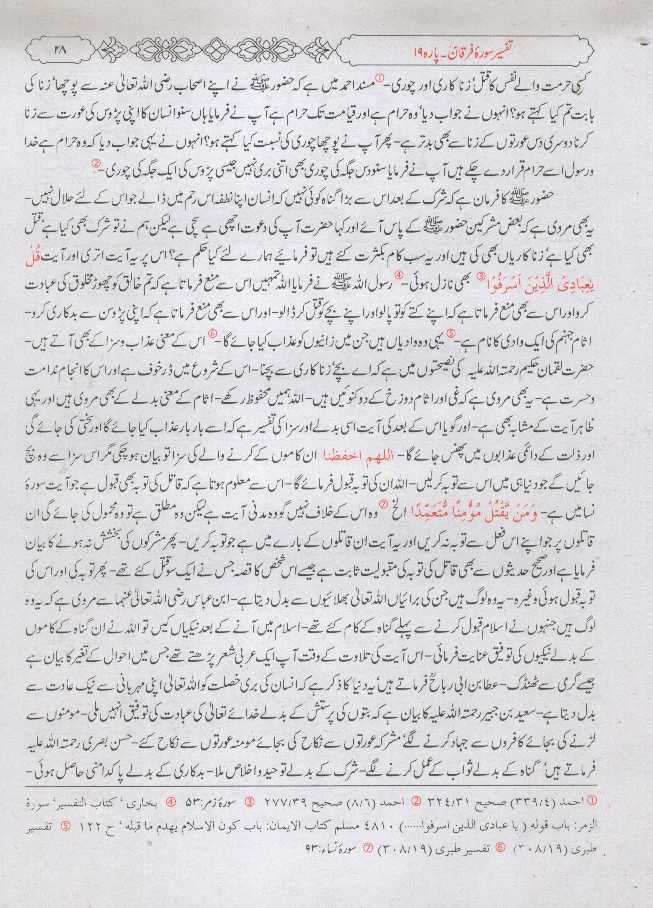 تفسیر سورۂ فرقان۔ پارہ ۱۹
۲۸
کسی حرمت والے نفس کا قتل‘ زنا کاری اور چوری-① مسند احمد میں ہے کہ حضور ﷺ نے اپنے اصحاب رضی اللہ تعالیٰ عنہ سے پوچھا‘ زنا کی
بابت تم کیا کہتے ہو؟ انہوں نے جواب دیا‘ وہ حرام ہے اور قیامت تک حرام ہے آپ نے فرمایا ہاں سنو انسان کا اپنی پڑوس کی عورت سے زنا
کرنا دوسری دس عورتوں کے زنا سے بھی بدتر ہے- پھر آپ نے پوچھا چوری کی نسبت کیا کہتے ہو؟ انہوں نے یہی جواب دیا کہ وہ حرام ہے خدا
ورسول اسے حرام قرار دے چکے ہیں آپ نے فرمایا سنو دس جگہ کی چوری بھی اتنی بری نہیں جیسی پڑوس کی ایک جگہ کی چوری-②
حضور ﷺ کا فرمان ہے کہ شرک کے بعد اس سے بڑا گناہ کوئی نہیں کہ انسان اپنا نطفہ اس رحم میں ڈالے جو اس کے لئے حلال نہیں-
یہ بھی مروی ہے کہ بعض مشرکین حضور ﷺ کے پاس آئے اور کہا حضرت آپ کی دعوت اچھی ہے سچی ہے لیکن ہم نے تو شرک بھی کیا ہے‘ قتل
بھی کیا ہے‘ زنا کاریاں بھی کی ہیں اور یہ سب کام بکثرت کئے ہیں تو فرمائیے ہمارے لئے کیا حکم ہے؟ اس پر یہ آیت اتری اور آیت قُلْ
یٰعِبَادِیَ الَّذِیْنَ اَسْرَفُوْا③ بھی نازل ہوئی-④ رسول اللہ ﷺ نے فرمایا اللہ تمہیں اس سے منع فرماتا ہے کہ تم خالق کو چھوڑ مخلوق کی عبادت
کرو اور اس سے بھی منع فرماتا ہے کہ اپنے کتے کو تو پالو اور اپنے بچے کو قتل کر ڈالو- اور اس سے بھی منع فرماتا ہے کہ اپنی پڑوسن سے بدکاری کرو-
اثام جہنم کی ایک وادی کا نام ہے-⑤ یہی وہ وادیاں ہیں جن میں زانیوں کو عذاب کیا جائے گا-⑥ اس کے معنی عذاب وسزا کے بھی آتے ہیں-
حضرت لقمان حکیم رحمتہ اللہ علیہ کی نصیحتوں میں ہے کہ اے بچے‘ زنا کاری سے بچنا- اس کے شروع میں ڈر خوف ہے اور اس کا انجام ندامت
وحسرت ہے- یہ بھی مروی ہے کہ غی اور اثام دوزخ کے دو کنوئیں ہیں- اللہ ہمیں محفوظ رکھے- اثام کے معنی بدلے کے بھی مروی ہیں اور یہی
ظاہر آیت کے مشابہ بھی ہے- اور گویا اس کے بعد کی آیت اسی بدلے اور سزا کی تفسیر ہے کہ اسے بار بار عذاب کیا جائے گا اور سختی کی جائے گی
اور ذلت کے دائمی عذابوں میں پھنس جائے گا- اللهم احفظنا ان کاموں کے کرنے والے کی سزا تو بیان ہو چکی مگر اس سزا سے وہ بچ
جائیں گے جو دنیا ہی میں اس سے توبہ کر لیں- اللہ ان کی توبہ قبول فرمائے گا- اس سے معلوم ہوتا ہے کہ قاتل کی توبہ بھی قبول ہے جو آیت سورۂ
نسا میں ہے- وَمَنْ یَّقْتُلْ مُؤْمِنًا مُّتَعَمِّدًا الخ⑦ وہ اس کے خلاف نہیں گو وہ مدنی آیت ہے لیکن وہ مطلق ہے تو وہ محمول کی جائے گی ان
قاتلوں پر جو اپنے اس فعل سے توبہ نہ کریں اور یہ آیت ان قاتلوں کے بارے میں ہے جو توبہ کریں- پھر مشرکوں کی بخشش نہ ہونے کا بیان
فرمایا ہے اور صحیح حدیثوں سے بھی قاتل کی توبہ کی مقبولیت ثابت ہے جیسے اس شخص کا قصہ جس نے ایک سو قتل کئے تھے- پھر توبہ کی اور اس کی
توبہ قبول ہوئی وغیرہ- یہ وہ لوگ ہیں جن کی برائیاں اللہ تعالیٰ بھلائیوں سے بدل دیتا ہے- ابن عباس رضی اللہ تعالیٰ عنہما سے مروی ہے کہ یہ وہ
لوگ ہیں جنہوں نے اسلام قبول کرنے سے پہلے گناہ کے کام کئے تھے- اسلام میں آنے کے بعد نیکیاں کیں تو اللہ نے ان گناہ کے کاموں
کے بدلے نیکیوں کی توفیق عنایت فرمائی- اس آیت کی تلاوت کے وقت آپ ایک عربی شعر پڑھتے تھے جس میں احوال کے تغیر کا بیان ہے
جیسے گرمی سے ٹھنڈک- عطا بن ابی رباح فرماتے ہیں‘ یہ دنیا کا ذکر ہے کہ انسان کی بری خصلت کو اللہ تعالیٰ اپنی مہربانی سے نیک عادت سے
بدل دیتا ہے- سعید بن جبیر رحمتہ اللہ علیہ کا بیان ہے کہ بتوں کی پرستش کے بدلے خدائے تعالیٰ کی عبادت کی توفیق انہیں ملی- مومنوں سے
لڑنے کی بجائے کافروں سے جہاد کرنے لگے‘ مشرکہ عورتوں سے نکاح کی بجائے مومنہ عورتوں سے نکاح کئے- حسن بصری رحمتہ اللہ علیہ
فرماتے ہیں‘ گناہ کے بدلے ثواب کے عمل کرنے لگے- شرک کے بدلے توحید و اخلاص ملا- بدکاری کے بدلے پاکدامنی حاصل ہوئی-
① احمد (٣٣٩/٤) صحیح ٣٢٤/٣١ ② احمد (٨/٦) صحیح ٢٧٧/٣٩ ③ سورۂ زمر:۵۳ ④ بخاری‘ کتاب التفسیر‘ سورة
الزمر: باب قوله (یا عبادی الذین اسرفوا.....) ٤٨١٠ مسلم کتاب الایمان: باب کون الاسلام یهدم ما قبله‘ ح ١٢٢ ⑤ تفسیر
طبری (٣٠٨/١٩) ⑥ تفسیر طبری (٣٠٨/١٩) ⑦ سورۂ نساء:۹۳